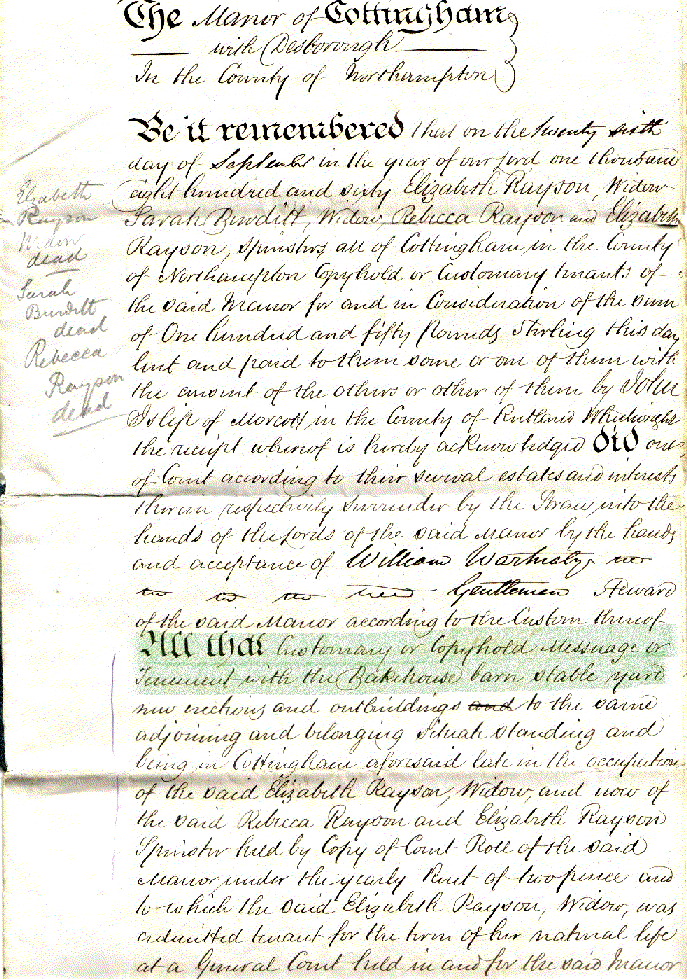 The Manor of Cottingham
with Desborough
In the County of Northampton
Be it remembered that on the twenty sixth
day of September in the year of our Lord one thousand
eight hundred and sixty Elizabeth Rayson, Widow
Sarah Burditt, Widow, Rebecca Rayson and Elizabeth
Rayson, Spinsters all of Cottingham, in the County
of Northampton Copyhold or Customary tenants of
the said Manor for and in Consideration of the sum
of One hundred and fifty Pounds Sterling this day
lent and paid to them some or one of them with
the consent of the others or other of them by John
Islip of Morcott in the County of Rutland Wheelwright
the receipt whereof is hereby acknowledged Did out
of Court according to their several estates and interests
therein respectively surrender by the Straw into the
hands of the Lords of the said Manor by the hands
and acceptance of William
Gentleman Steward
of the said Manor according to the Custom thereof
All that Customary or Copyhold Messuage or
Tenement with the Bakehouse barn stable yard
new erections and outbuildings and to the same
adjoining and belonging Situate standing and
being in Cottingham aforesaid late in the occupation
of the said Elizabeth Rayson, Widow, and now of
the said Rebecca Rayson and Elizabeth Rayson
Spinster held by Copy of Court Roll of the said
Manor under the yearly Rent of twopence and
to which the said Elizabeth Rayson, Widow, was
admitted tenant for the term of her natural life
at a General Court held in and for the said Manor
Elizabeth
Rayson
Widow
dead
Sarah
Burditt
dead
Rebecca
Rayson
dead